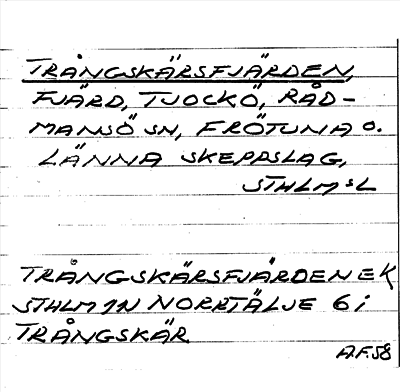 TRÅNGSKÄRSFJÄRDEN,
FJÄRD, TJOCKÖ, RÅD-
MANSÖ SN, FRÖTUNA O.
LÄNNA SKEPPSLAG,
STHLMSL
TRÅNGSKÄRSFJÄRDEN EK
STHLM 1N NORRTÄLJE 6 i
TRÅNGSKÄR
A.F. 58